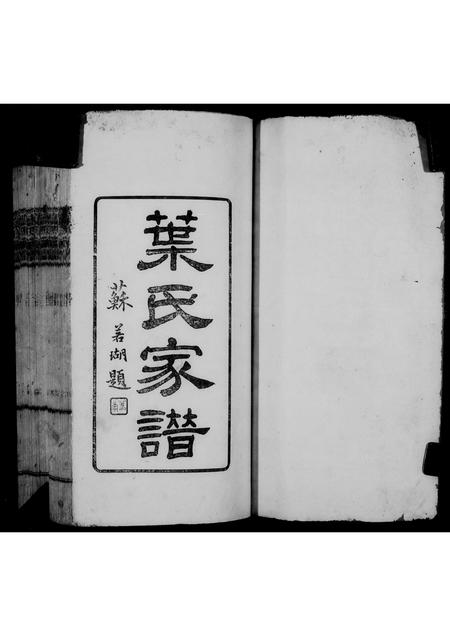 葉氏家譜
蘇若瑚題